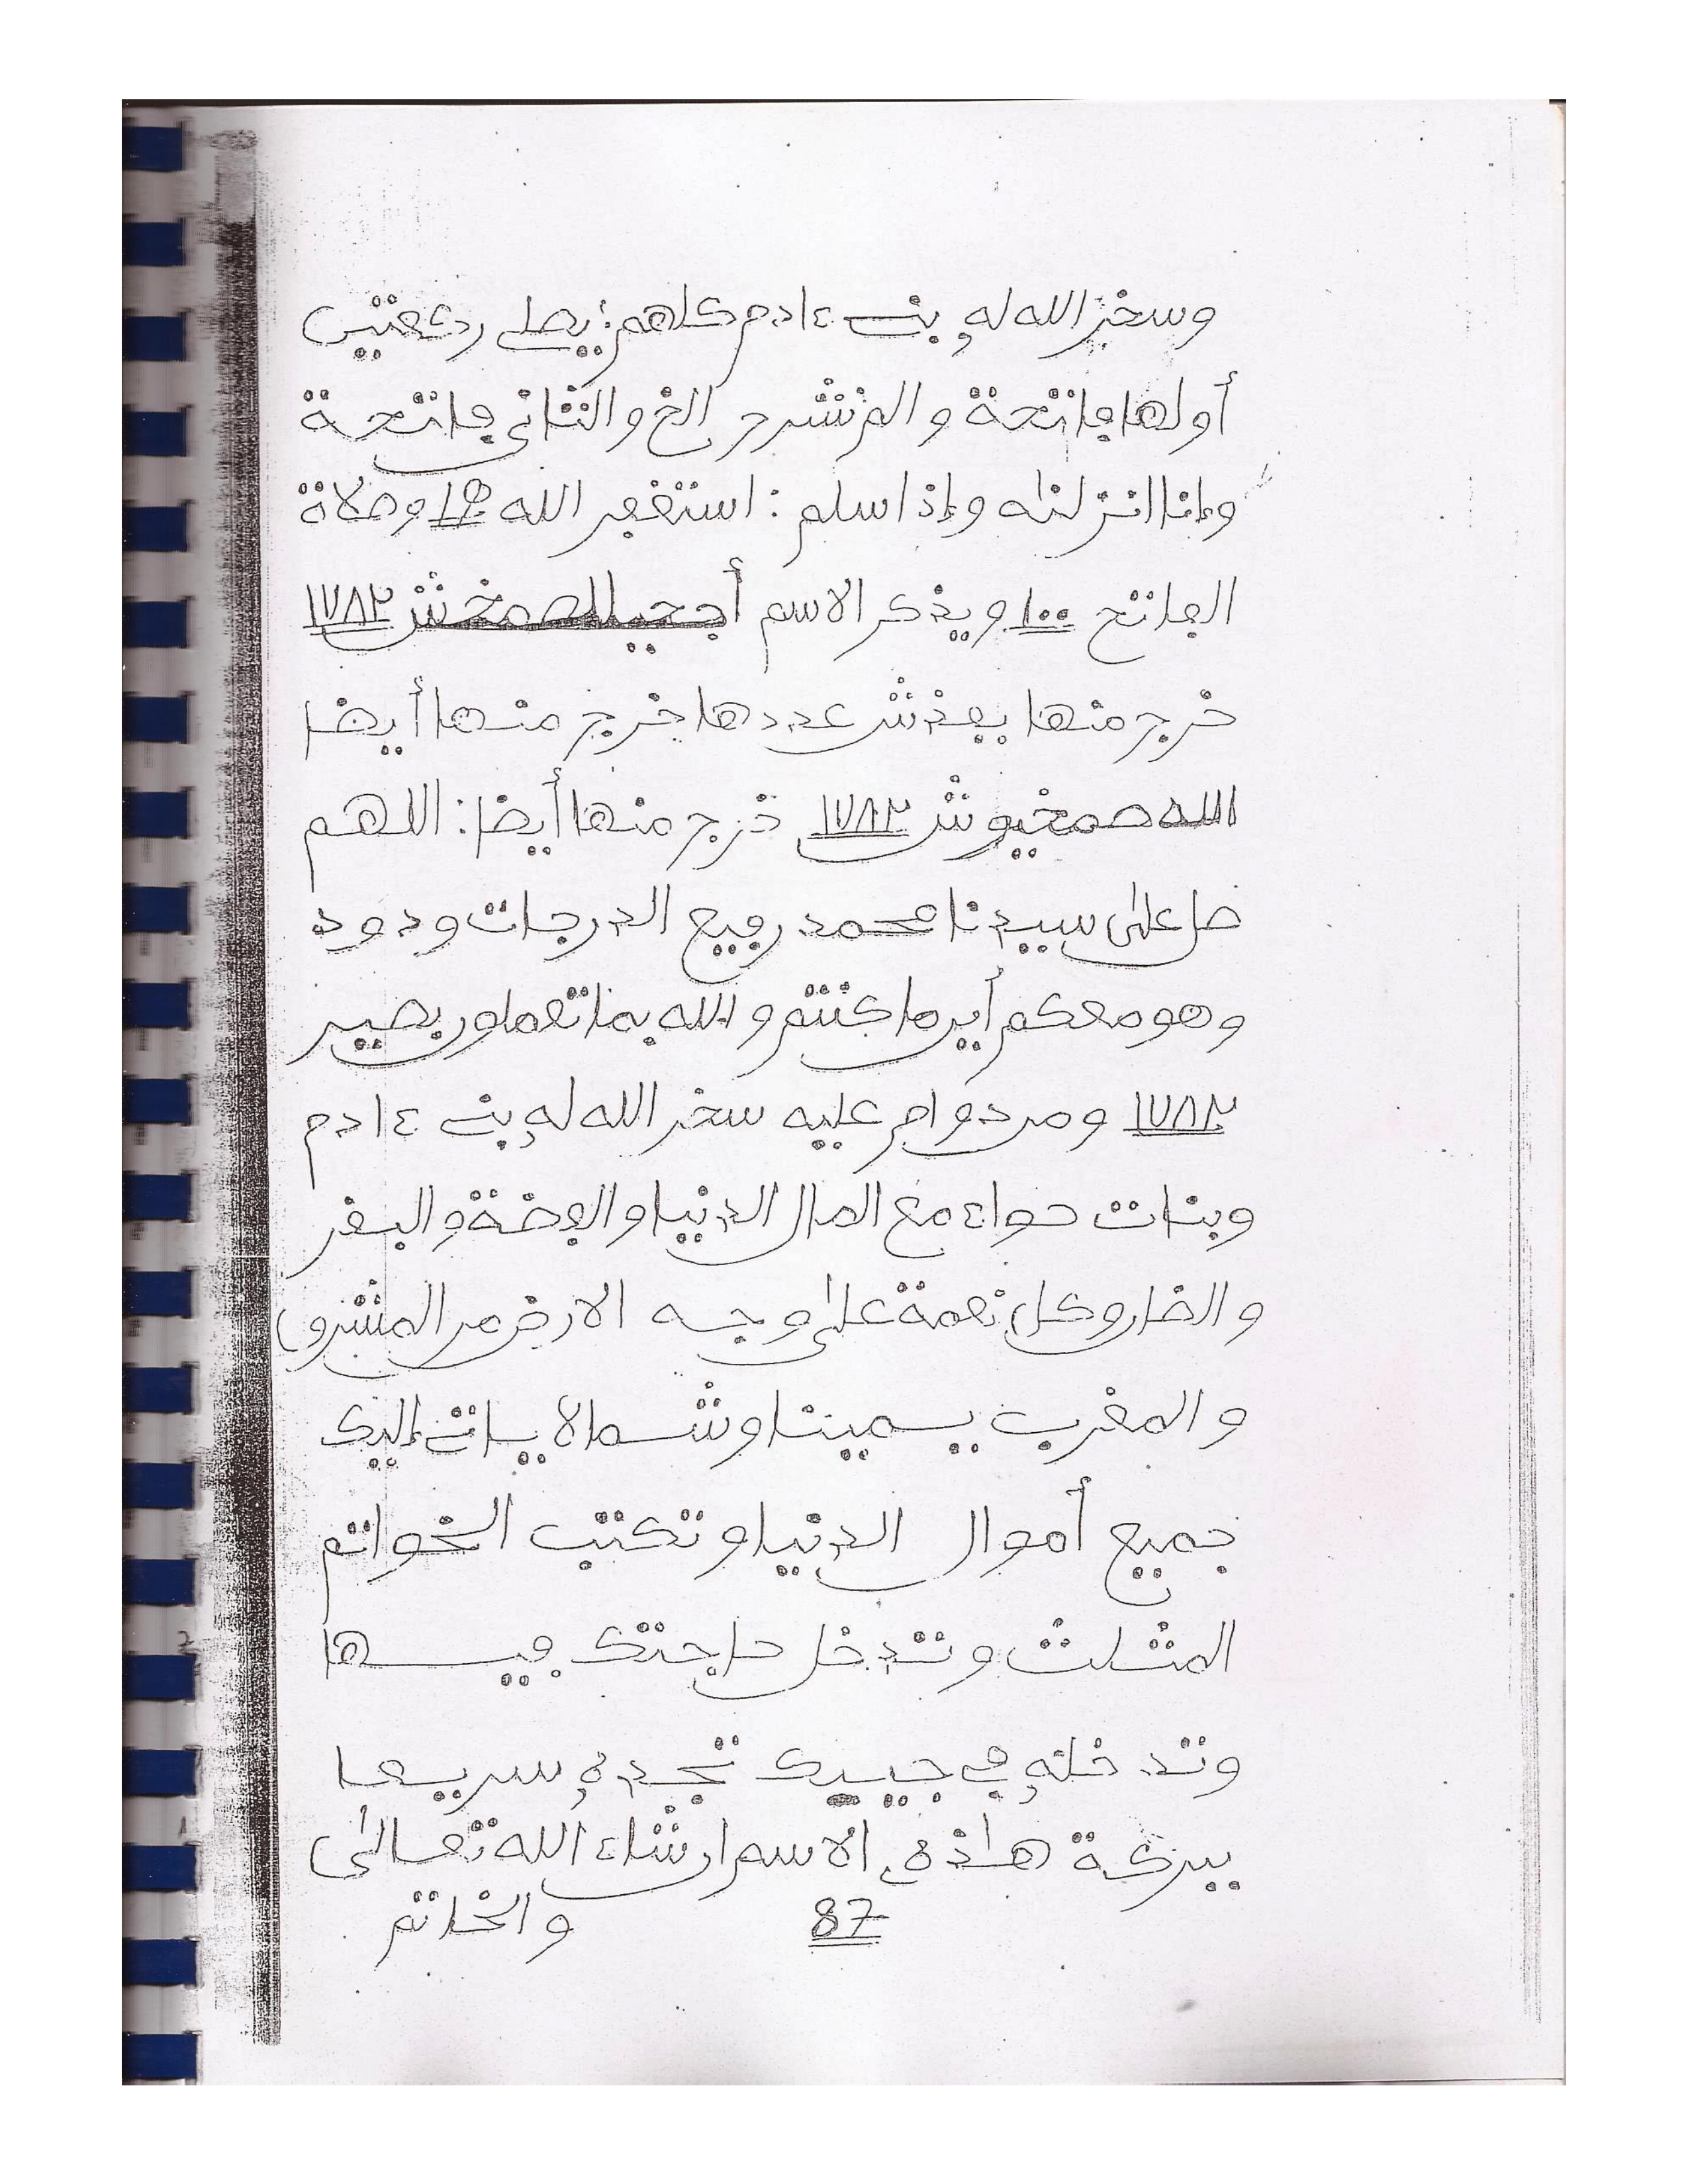 وسخر الله له بني ءادم كلهم: يصلي ركعتين
أولها فاتحة والم نشرح الخ والثاني فاتحة
وإنا انزلنه وإذا سلم : استغفر الله وصلاة
الفاتح ١٠٠ ويذكر الاسم ١٧٨٢
خرج منها بعد عددها خرج منها أيضا
الله صمخيوش ١٧٨٢ خرج منها أيضا : اللهم
صل على سيدنا محمد رفيع الدرجات ودود
وهو معكم أين ما كنتم والله بما تعملون بصير
١٧٨٢ ومن دوام عليه سخر الله له بني ءادم
وبنات حواء مع المال الدنيا والفضة والبقر
والضان وكل نعمة على وجه الارض من المشرق
والمغرب يمينا وشمالا ياتي إليك
جميع أموال الدنيا وتكتب الخواتم
المثلث وتدخل حاجتك فيها
وتدخله في جيبك تجده سريعا
ببركة هاذه الاسم ان شاء الله تعالى
87 والخاتم